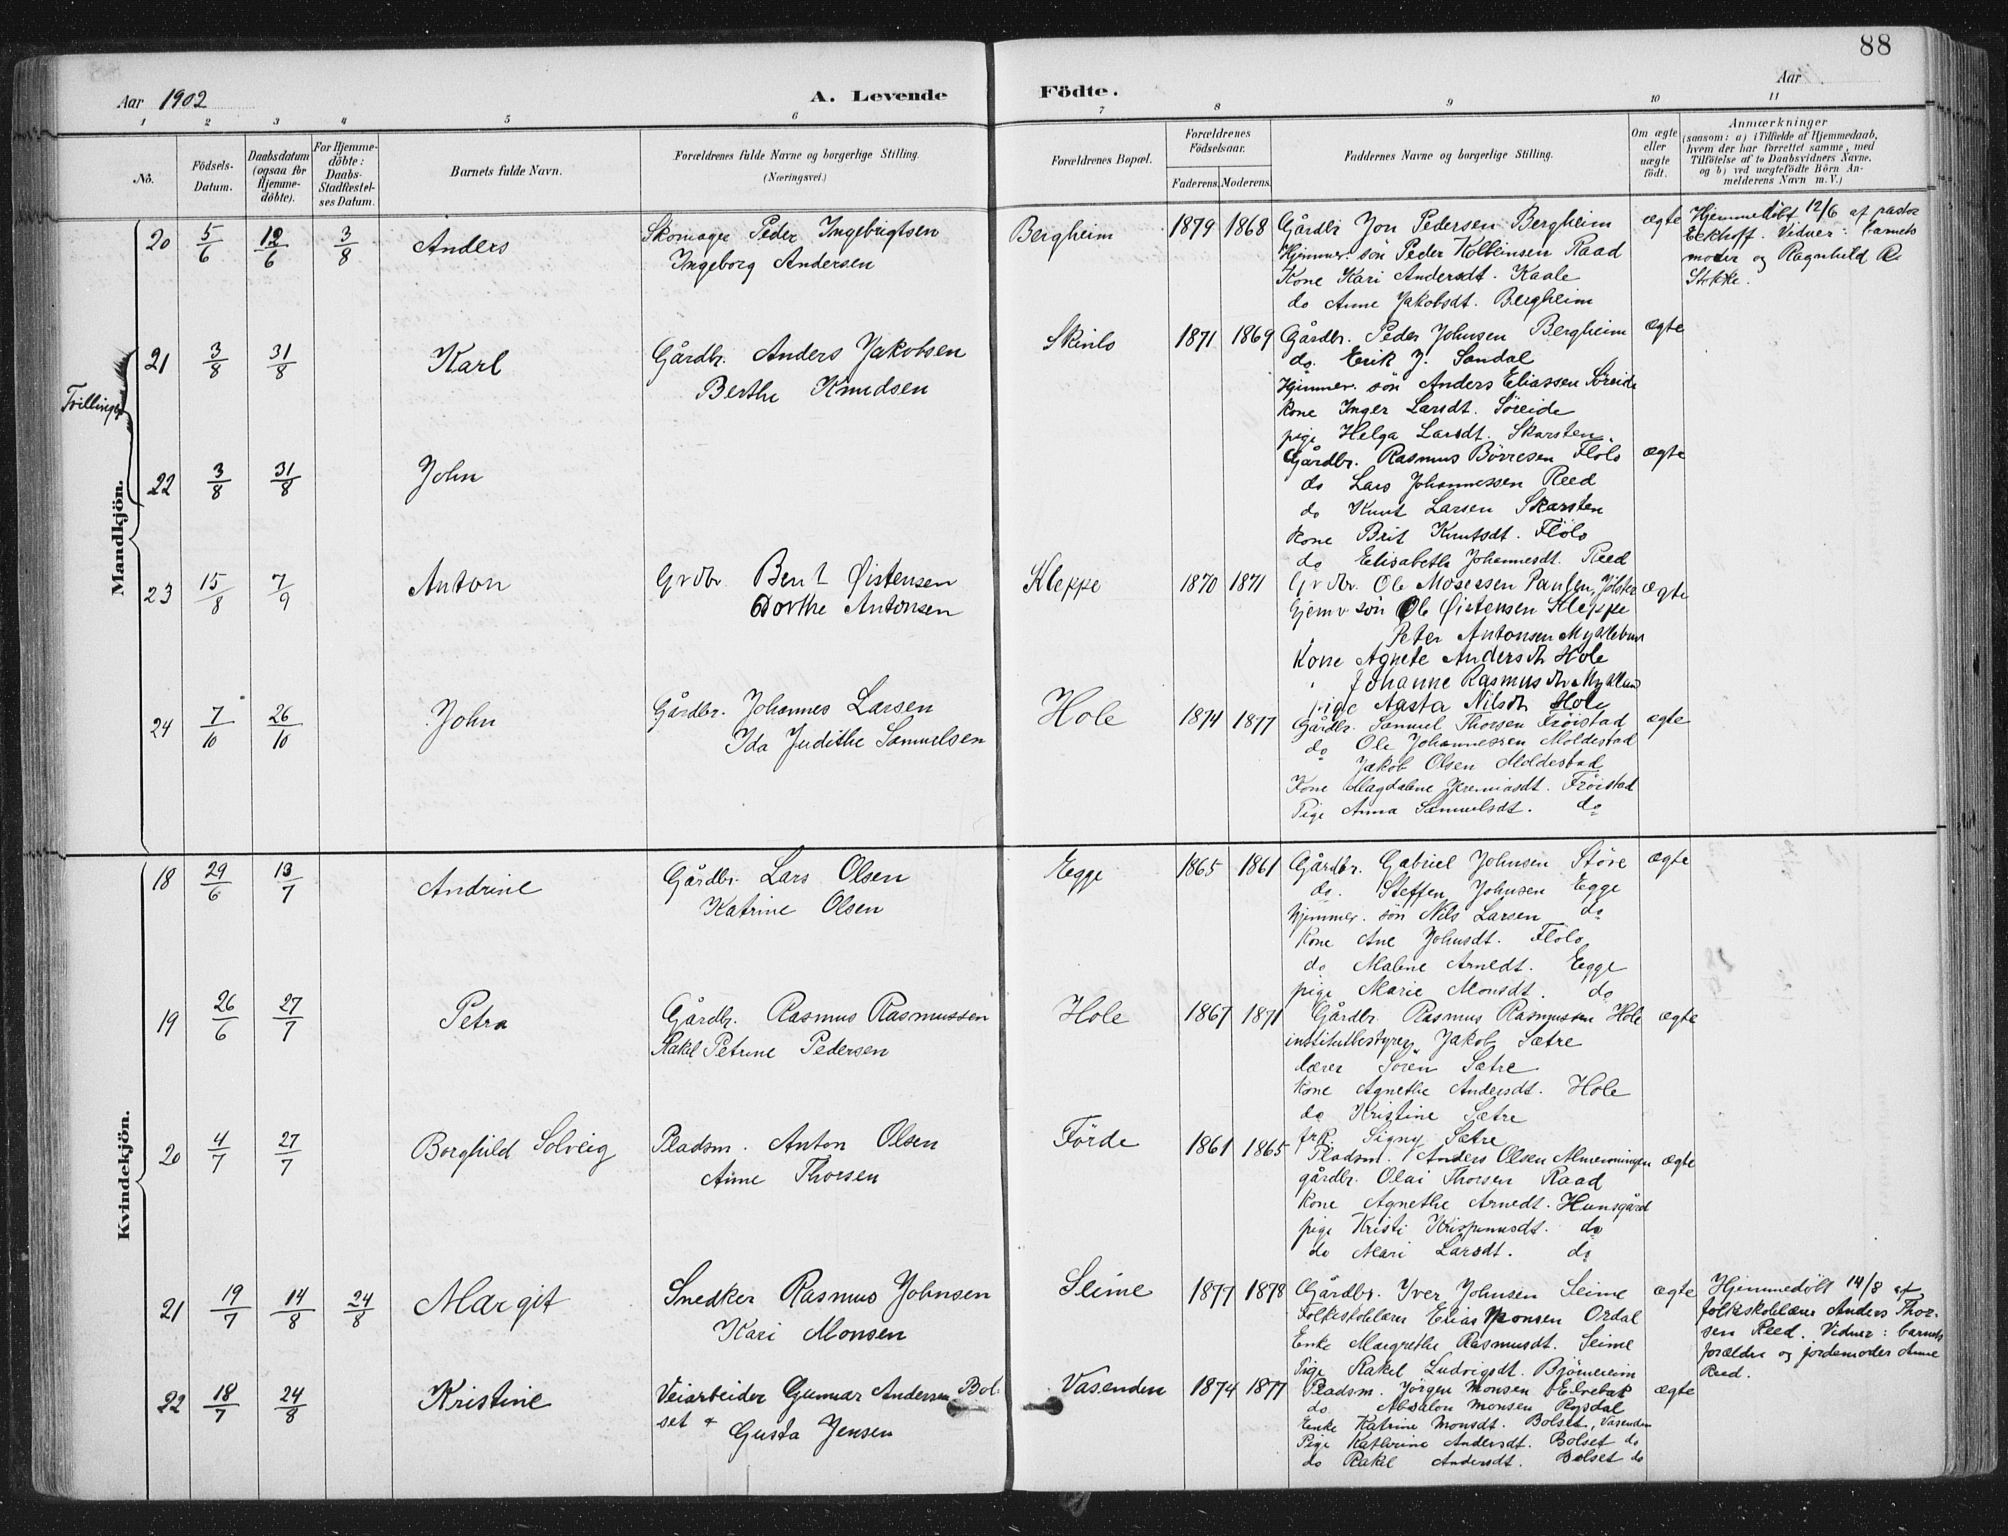 88
Aar 1902
A. Levende Födte.
Aar
1 2 3 4 5 6 7 8 9 10 11
No.
Födsels-Datum.
Daabsdatum (ogsaa for Hjemme-döbte).
For Hjemme-döbte: Daabs-Stadfæstel-ses Datum.
Barnets fulde Navn.
Forældrenes fulde Navne og borgerlige Stilling.
(Næringsvei.)
Forældrenes Bopæl.
Forældrenes Födselsaar.
Faderens. Moderens.
Faddernes Navne og borgerlige Stilling.
Om ægte eller uægte födt.
Anmærkninger
(saasom: a) i Tilfælde af Hjemmedaab,
hvem der har forrettet samme, med
Tilföielse af to Daabsvidners Navne.
og b) ved uægtefödte Börn An-
melderens Navn m. V.)
Mandkjön.
20 5/6 12/6 3/8 Anders
Skomager Peder Ingebrigtsen
Ingeborg Andersen
Bergheim 1879 1868
Gårdbr Jon Pedersen Bergheim
Hjemmev. søn Peder Kolbeinsen Raad
Kone Kari Andersdt. Kaale
do Anne Jakobsdt. Bergheim
ægte
Hjemmedöbt 12/6 af pastor
Eckhoff. Vidner: barnets
moder og Ragnhild R.
Stokke.
Tvillinger
21 3/8 31/8 Karl
Gårdbr. Anders Jakobsen
Berthe Knudsen
Skinlo 1871 1869
Gårdbr. Peder Johnsen Bergheim
do. Erik J. Sandal
Hjemmev. søn Anders Eliassen Söreide
kone Inger Larsdt. Söreide
pige Helga Larsdt. Skarsten.
ægte
22 3/8 31/8 John
Gårdbr. Rasmus Börresen Flölo
do Lars Johannessen Reed
do Knut Larsen Skarsten
kone Brit Knutsdt. Flölo
do Elisabeth Johannesdt. Reed
ægte
23 15/8 7/9 Anton
Grdbr. Bent Øistensen
Dorthe Antonsen
Kleppe 1870 1871
Grdbr Ole Mosessen Paulen, Jölster
Hjemv søn Ole Øistensen Kleppe
Peter Antonsen Myklebust
Kone Agnete Andersdtr Hole
Johanne Rasmusdtr Myklebust
pige Aasta Nilsdtr Hole
ægte
24 7/10 26/10 John
Gårdbr. Johannes Larsen
Ida Judithe Samuelsen
Hole 1874 1877
Gårdbr. Samuel Thorsen Fröistad
do Ole Johannessen Moldestad
Jakob Olsen Moldestad
Kone Magdalene Jeremiasdt. Fröistad
Pige Anna Samuelsdt. do
ægte
Kvindekjön.
18 29/6 13/7 Andrine
Gårdbr. Lars Olsen
Katrine Olsen
Egge 1865 1861
Gårdbr. Gabriel Johnsen Störe
do. Steffen Johnsen Egge
hjemmev. søn Nils Larsen do
Kone Ane Johnsdt. Flölo
do Malene Arnedt. Egge
pige Marie Monsdt. do
ægte
19 26/6 27/7 Petra
Gårdbr. Rasmus Rasmussen
Rakel Petrine Pedersen
Hole 1867 1871
Gårdbr. Rasmus Rasmussen Hole
institutbestyrer Jakob Sætre
lærer Sören Sætre
Kone Agnethe Andersdt. Hole
do Kristine Sætre
frk. Signy Sætre
ægte
20 4/7 27/7 Borghild Solveig
Pladsm. Anton Olsen
Anne Thorsen
Förde 1861 1865
Pladsm. Anders Olsen Almenningen
gårdbr. Olai Thorsen Raad
Kone Agnethe Arnedt. Hunsgård
pige Kristi Krispinusdt. do
do Mari Larsdt. do
ægte
21 19/7 14/8 24/8 Margit
Snedker Rasmus Johnsen
Kari Monsen
Seime 1877 1878
Gårdbr. Iver Johnsen Seime
Folkeskolelærer Elias Monsen Ordal
Enke Margrethe Rasmusdt. Seime
Pige Rakel Ludvigsdt. Björnereim
ægte
Hjemmedöbt 14/8 af
folkeskolelærer Anders Thor-
sen Reed. Vidner: barnets
forældre og jordemoder Anne
Reed.
22 18/7 24/8 Kristine
Veiarbeider Gunnar Andersen Bol-
set &
Gusta Jensen
Vasenden 1874 1877
Pladsm. Jörgen Monsen Elvebak
do Absalon Monsen Rysdal
Enke Katrine Monsdt. Bolset, Vasenden
Pige Kathrine Andersdt. Bolset do
do Rakel Andersdt. Bolset do
ægte